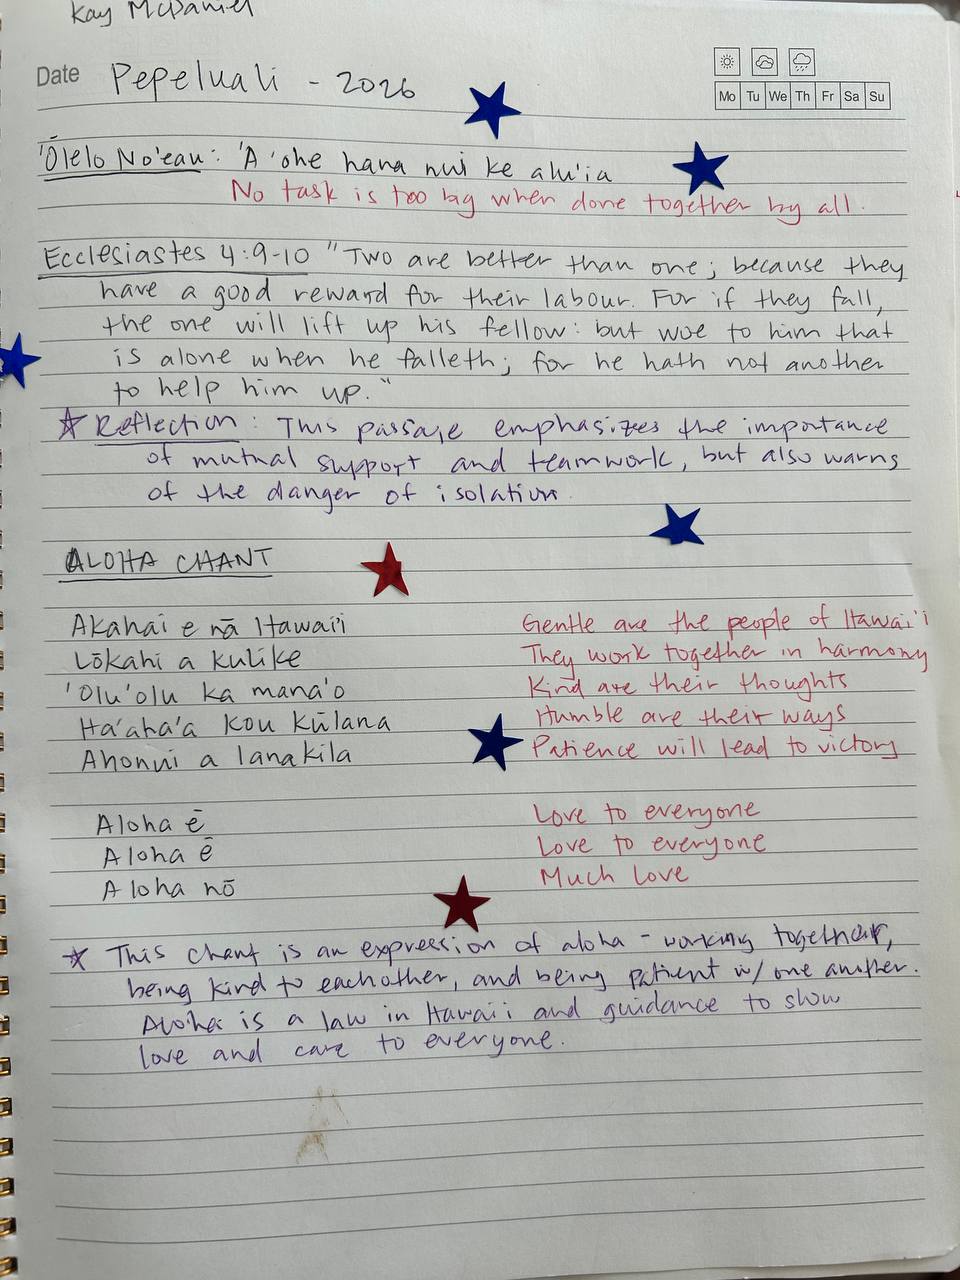 Kay McDaniel
Date Pepeluali - 2026
Mo Tu We Th Fr Sa Su
'Ōlelo No'eau: 'A 'ohe hana nui ke alu'ia
No task is too big when done together by all.
Ecclesiastes 4:9-10 "Two are better than one; because they
have a good reward for their labour. For if they fall,
the one will lift up his fellow: but woe to him that
is alone when he falleth; for he hath not another
to help him up."
☆ Reflection: This passage emphasizes the importance
of mutual support and teamwork, but also warns
of the danger of isolation.
ALOHA CHANT
Akahai e nā Hawai'i Gentle are the people of Hawai'i
Lōkahi a kulike They work together in harmony
'Olu'olu ka mana'o Kind are their thoughts
Ha'aha'a kou kūlana Humble are their ways
Ahonui a lanakila Patience will lead to victory
Aloha ē Love to everyone
Aloha ē Love to everyone
Aloha nō Much love
☆ This chant is an expression of aloha - working together,
being kind to eachother, and being patient w/ one another.
Aloha is a law in Hawai'i and guidance to show
love and care to everyone.